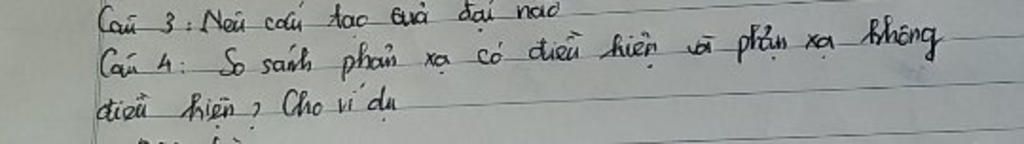 Câu 3: Nêu cấu tạo của đại não
Câu 4: So sánh phản xạ có điều kiện và phản xạ không
điều kiện? Cho ví dụ